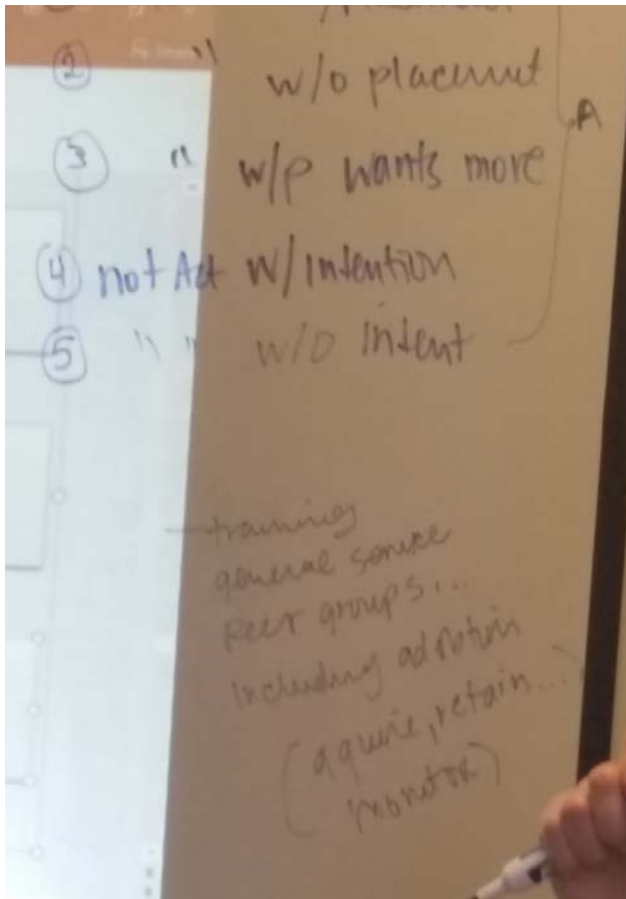 ② " w/o placemnt
A
③ " w/p wants more
④ not Act w/intention
⑤ " " w/o intent
- training
general service
peer groups...
including adoption
(aquire, retain...
monitor)